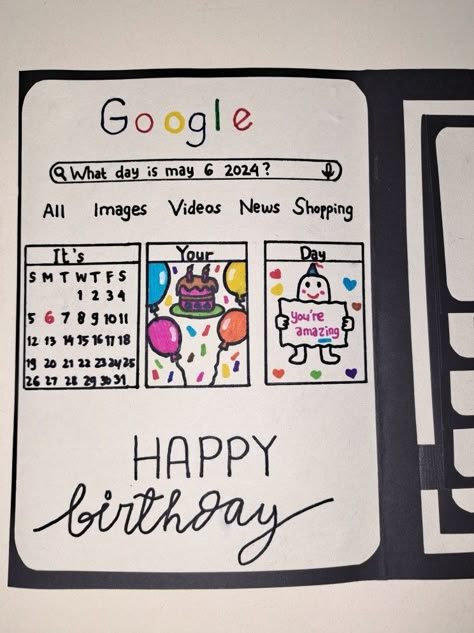 Google
What day is may 6 2024?
All Images Videos News Shopping
It's Your Day
S M T W T F S
1 2 3 4
5 6 7 8 9 10 11
12 13 14 15 16 17 18
19 20 21 22 23 24 25
26 27 28 29 30 31
you're
amazing
HAPPY
birthday